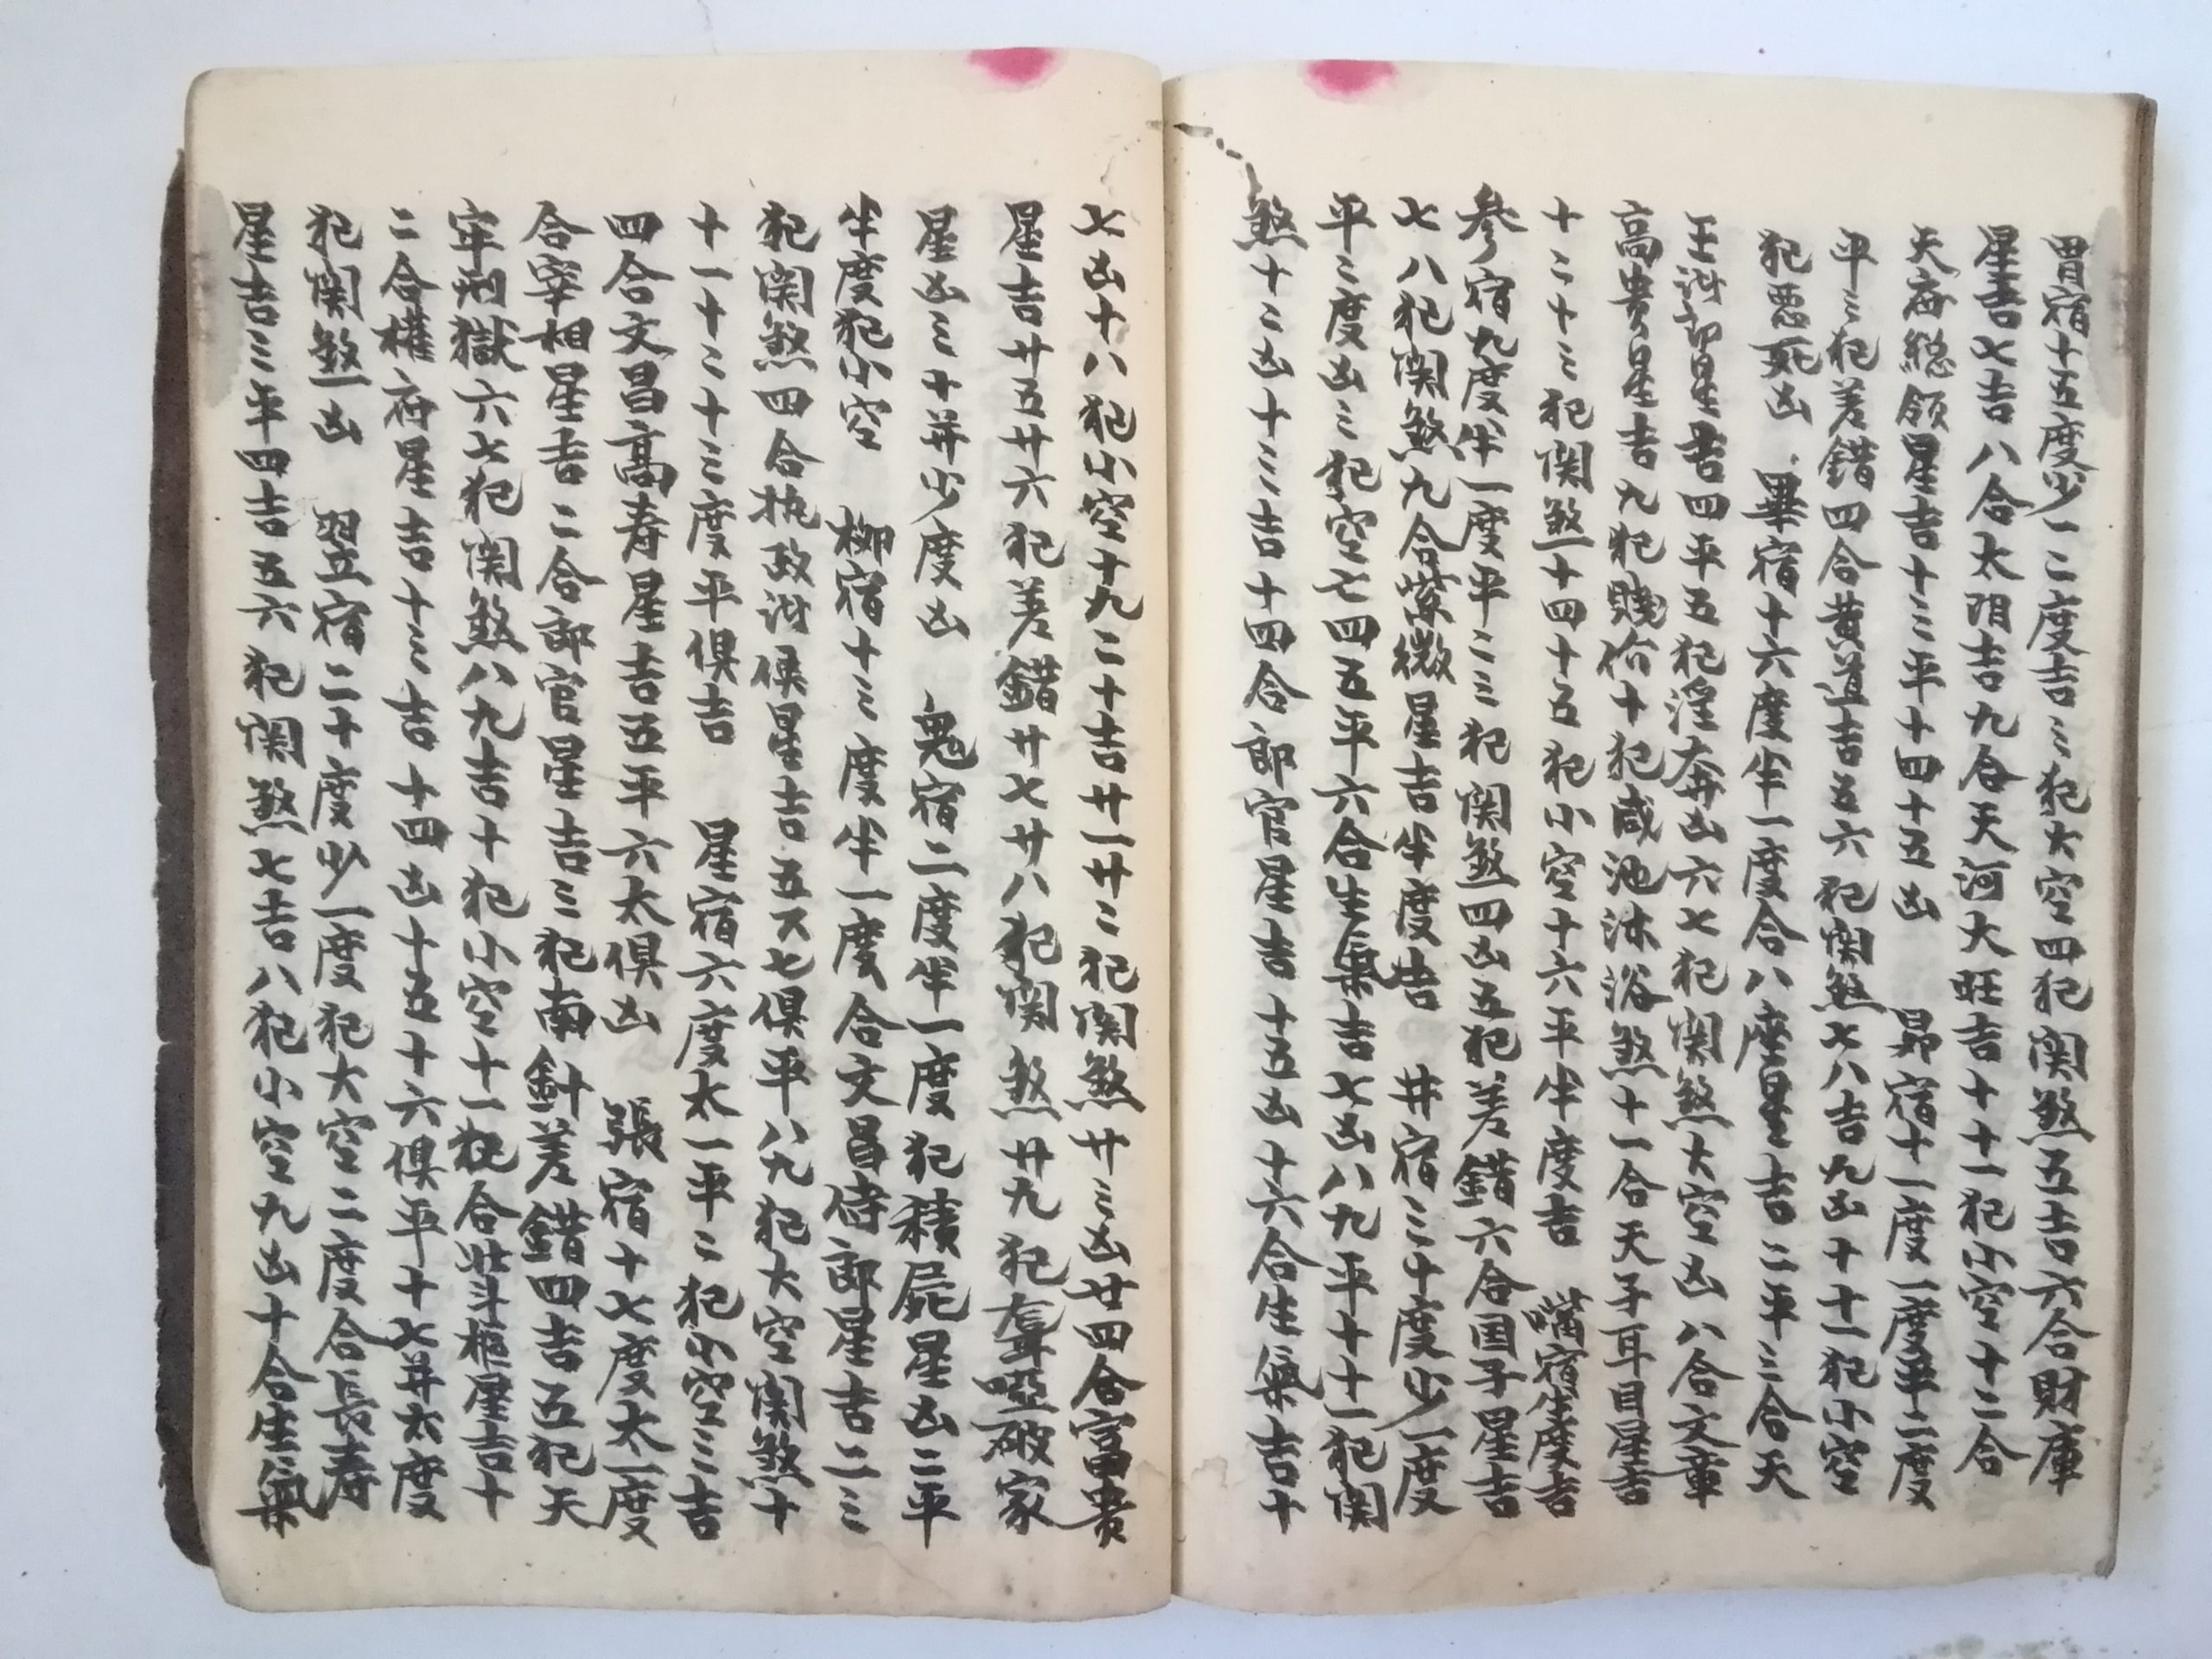 胃宿十五度少一二度吉三犯大空四犯関煞五吉六合財庫
星吉七吉八合太阴吉九合天河大旺吉十十一犯小空十二合
天府総領星吉十三平十四十五凶 昴宿十一度一度平二度
平三犯差錯四合黄道吉五六犯関煞七八吉九凶十十一犯小空
犯悪死凶 畢宿十六度半一度合八座星吉二平三合天
王討部星吉四平五犯淫奔凶六七犯関煞大空凶八合文章
高貴星吉九犯賤伶十犯咸池沐浴煞十一合天子耳目星吉
十二十三犯関煞十四十五犯小空十六平半度吉 嘴宿半度吉
参宿九度半一度平二三犯関煞四凶五犯差錯六合国子星吉
七八犯関煞九合紫微星吉半度吉 井宿三十度少一度
平二度凶三犯空七四五平六合生氣吉七凶八九平十十一犯関
煞十二凶十三吉十四合郎官星吉十五凶十六合生氣吉十
七凶十八犯小空十九二十吉廿一廿二犯関煞廿三凶廿四合富貴
星吉廿五廿六犯差錯廿七廿八犯関煞廿九犯聾啞破家
星凶三十并少度凶 鬼宿二度半一度犯積屍星凶二平
半度犯小空 柳宿十三度半一度合文昌侍郎星吉二三
犯関煞四合执政討侯星吉五六七俱平八九犯大空関煞十
十一十二十三度平俱吉 星宿六度太一平二犯小空三吉
四合文昌高寿星吉五平六太俱凶 張宿十七度太一度
合宰相星吉二合郎官星吉三犯南針差錯四吉五犯天
牢刑獄六七犯関煞八九吉十犯小空十一犯合北斗枢星吉十
二合權府星吉十三吉十四凶十五十六俱平十七并太度
犯関煞一凶 翌宿二十度少一度犯大空二度合長寿
星吉三平四吉五六犯関煞七吉八犯小空九凶十合生氣